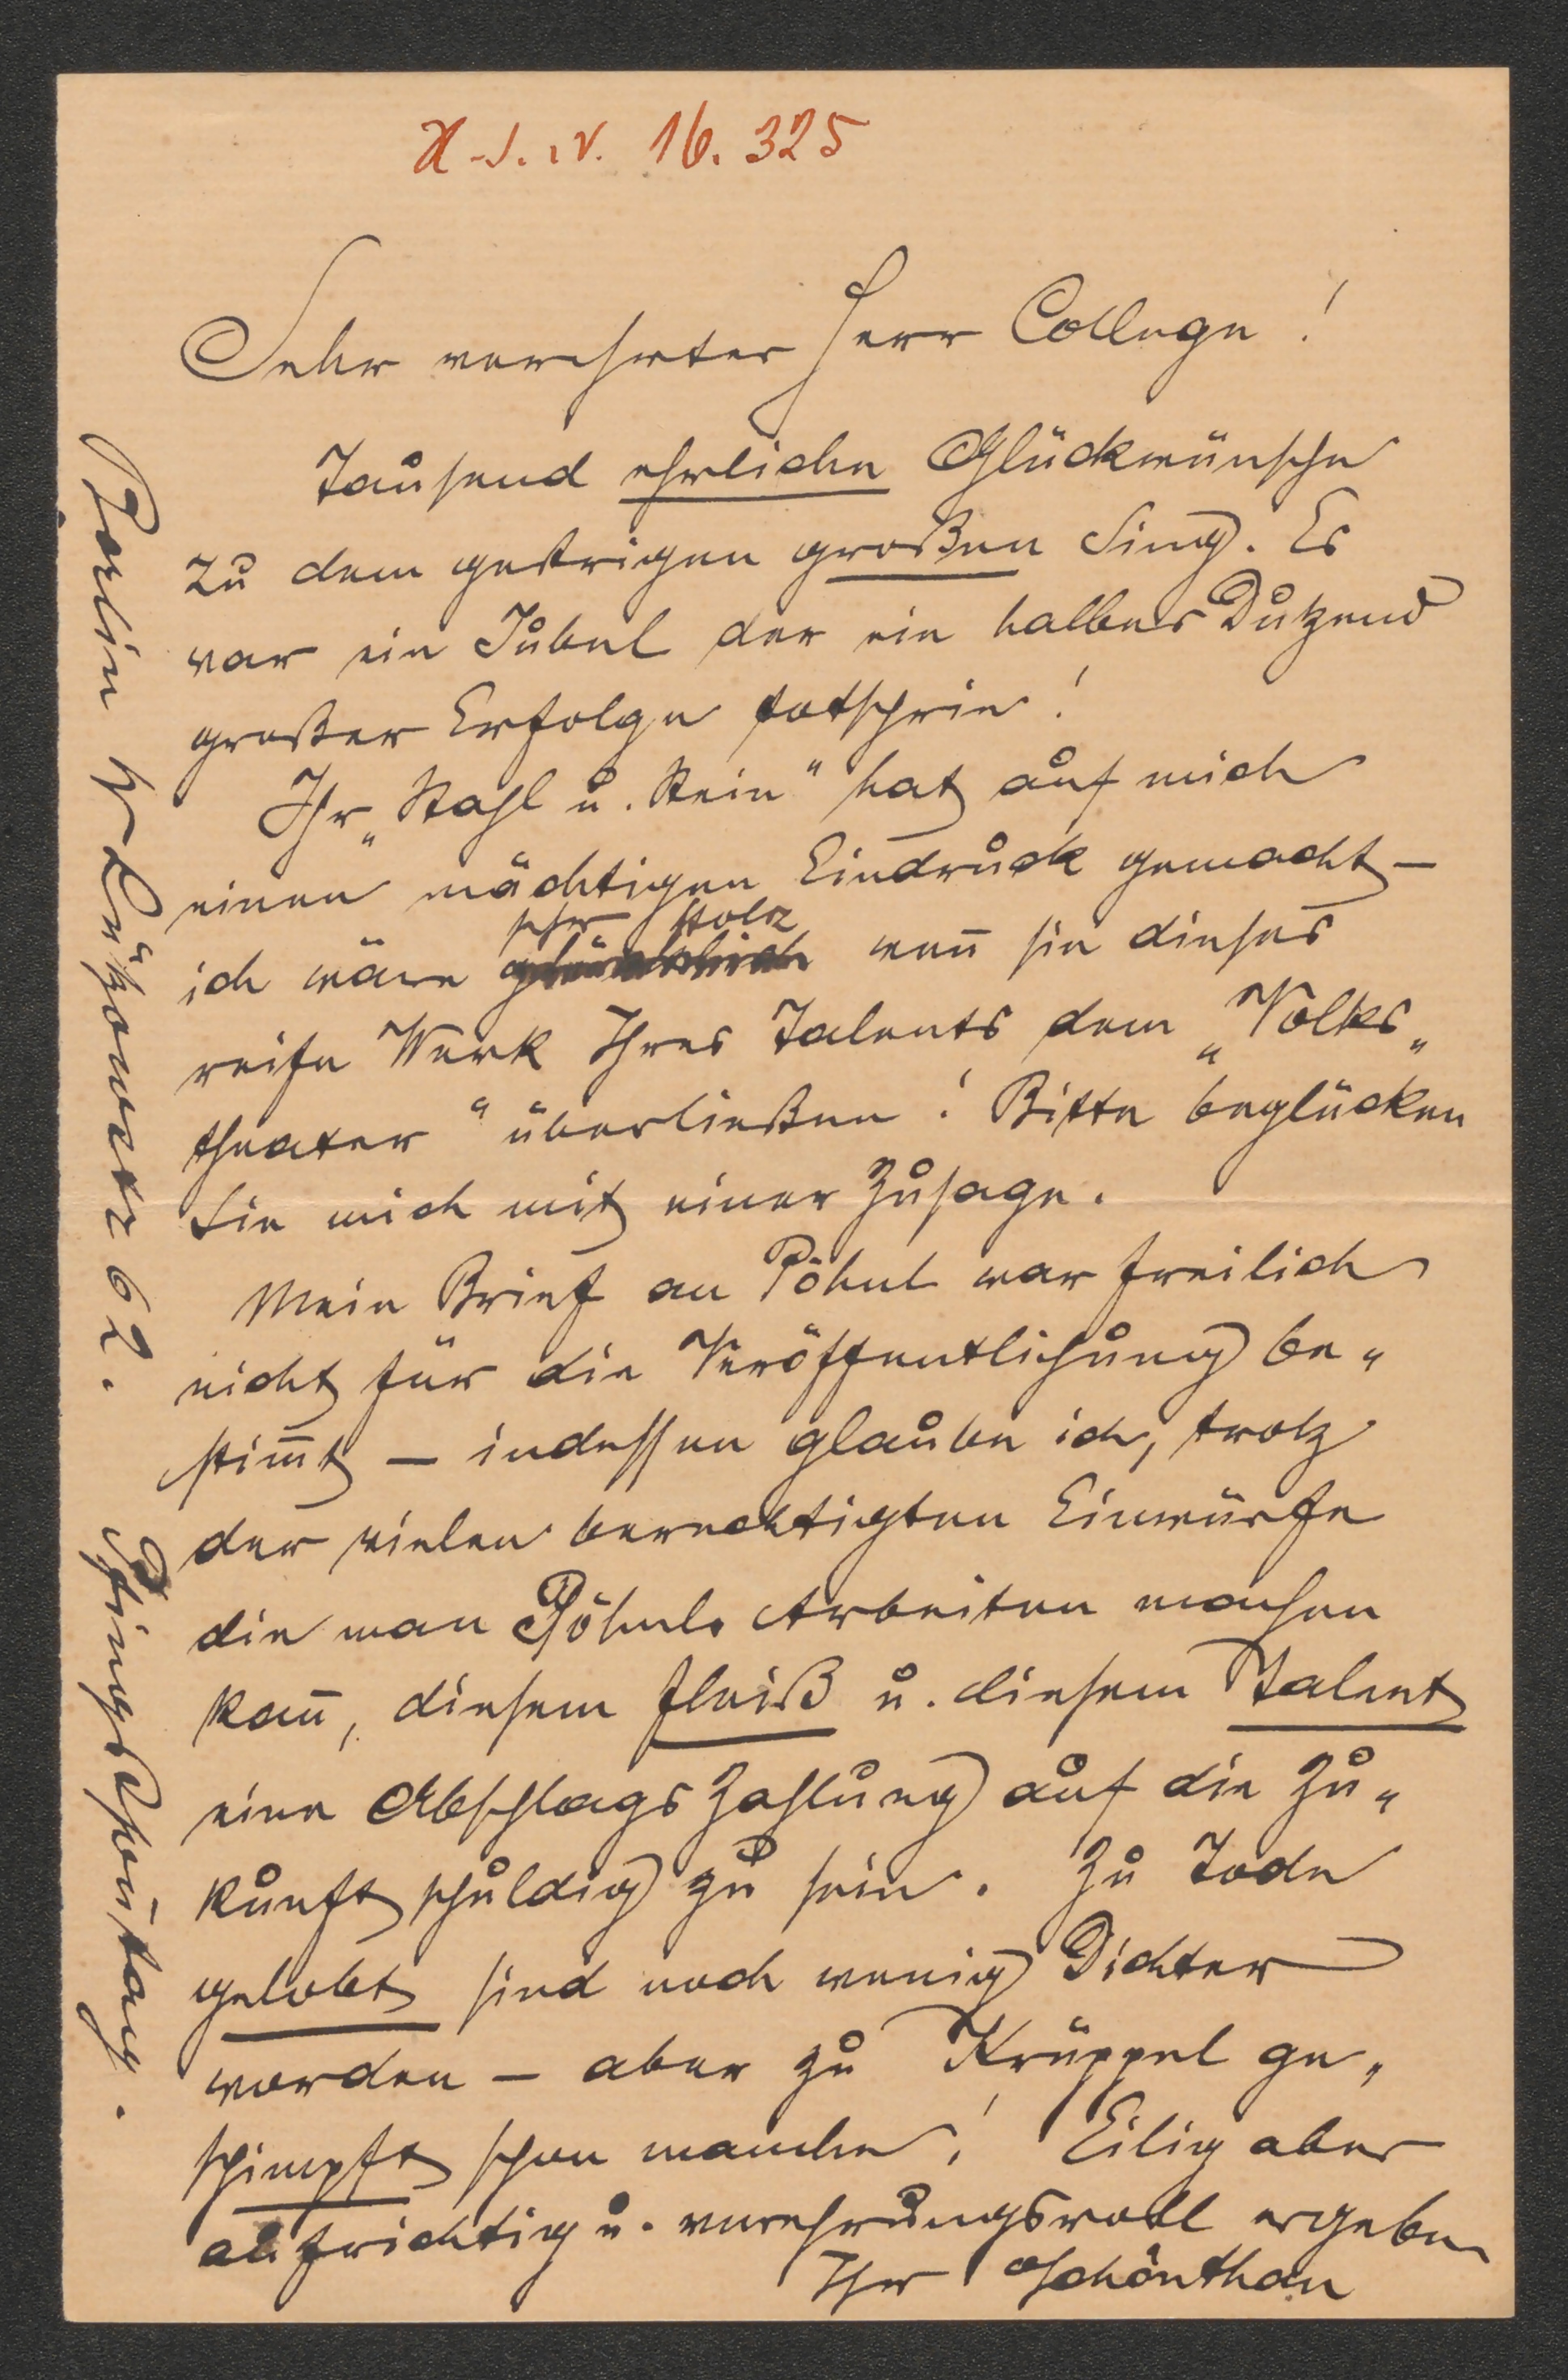 H.I.N. 16.325
Sehr verehrter Herr College!
Tausend ehrliche Glückwünsche
zu dem gestrigen großen Sieg. Es
war ein Jubel der ein halbes Dutzend
großer Erfolge totschrie!
Ihr „Stahl u. Stein" hat auf mich
einen mächtigen Eindruck gemacht –
sehr stolz
ich wäre glücklich weñ sie dieses
reife Werk Ihres Talents dem „Volks„
theater" überließen! Bitte beglücken
Sie mich mit einer Zusage.
Mein Brief an Pöhnl war freilich
nicht für die Veröffentlichung be„
stim̄t – indessen glaube ich, trotz
der vielen berechtigten Einwürfe
die man Pöhnls Arbeiten machen
kañ, diesem Fleiß u. diesem Talent
eine Abschlagszahlung auf die Zu„
kunft schuldig zu sein. Zu Tode
gelobt sind noch wenig Dichter
worden – aber zu Krüppel ge„
schimpft schon manche! Eilig aber
aufrichtig u. verehrungsvoll ergeben
Ihr Schönthan
Berlin W Lützowstr 62. Pfingstsonntag.